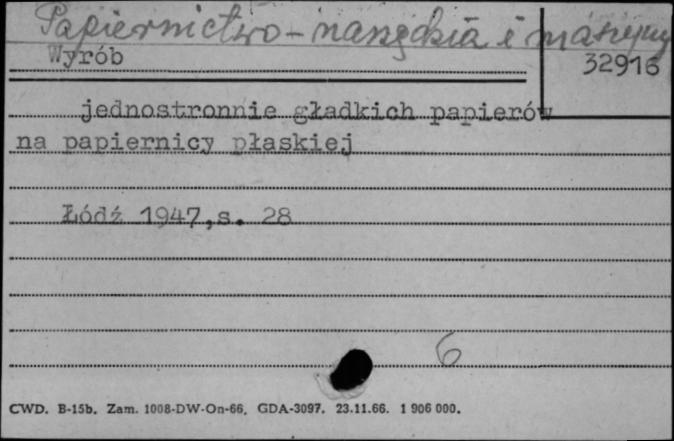 Papiernictwo - narzędzia i maszyny
Wyrób
32916
jednostronnie gładkich papierów
na papiernicy płaskiej
Łódź 1947,s. 28
6
CWD. B-15b. Zam. 1008-DW-On-66. GDA-3097. 23.11.66. 1 906 000.